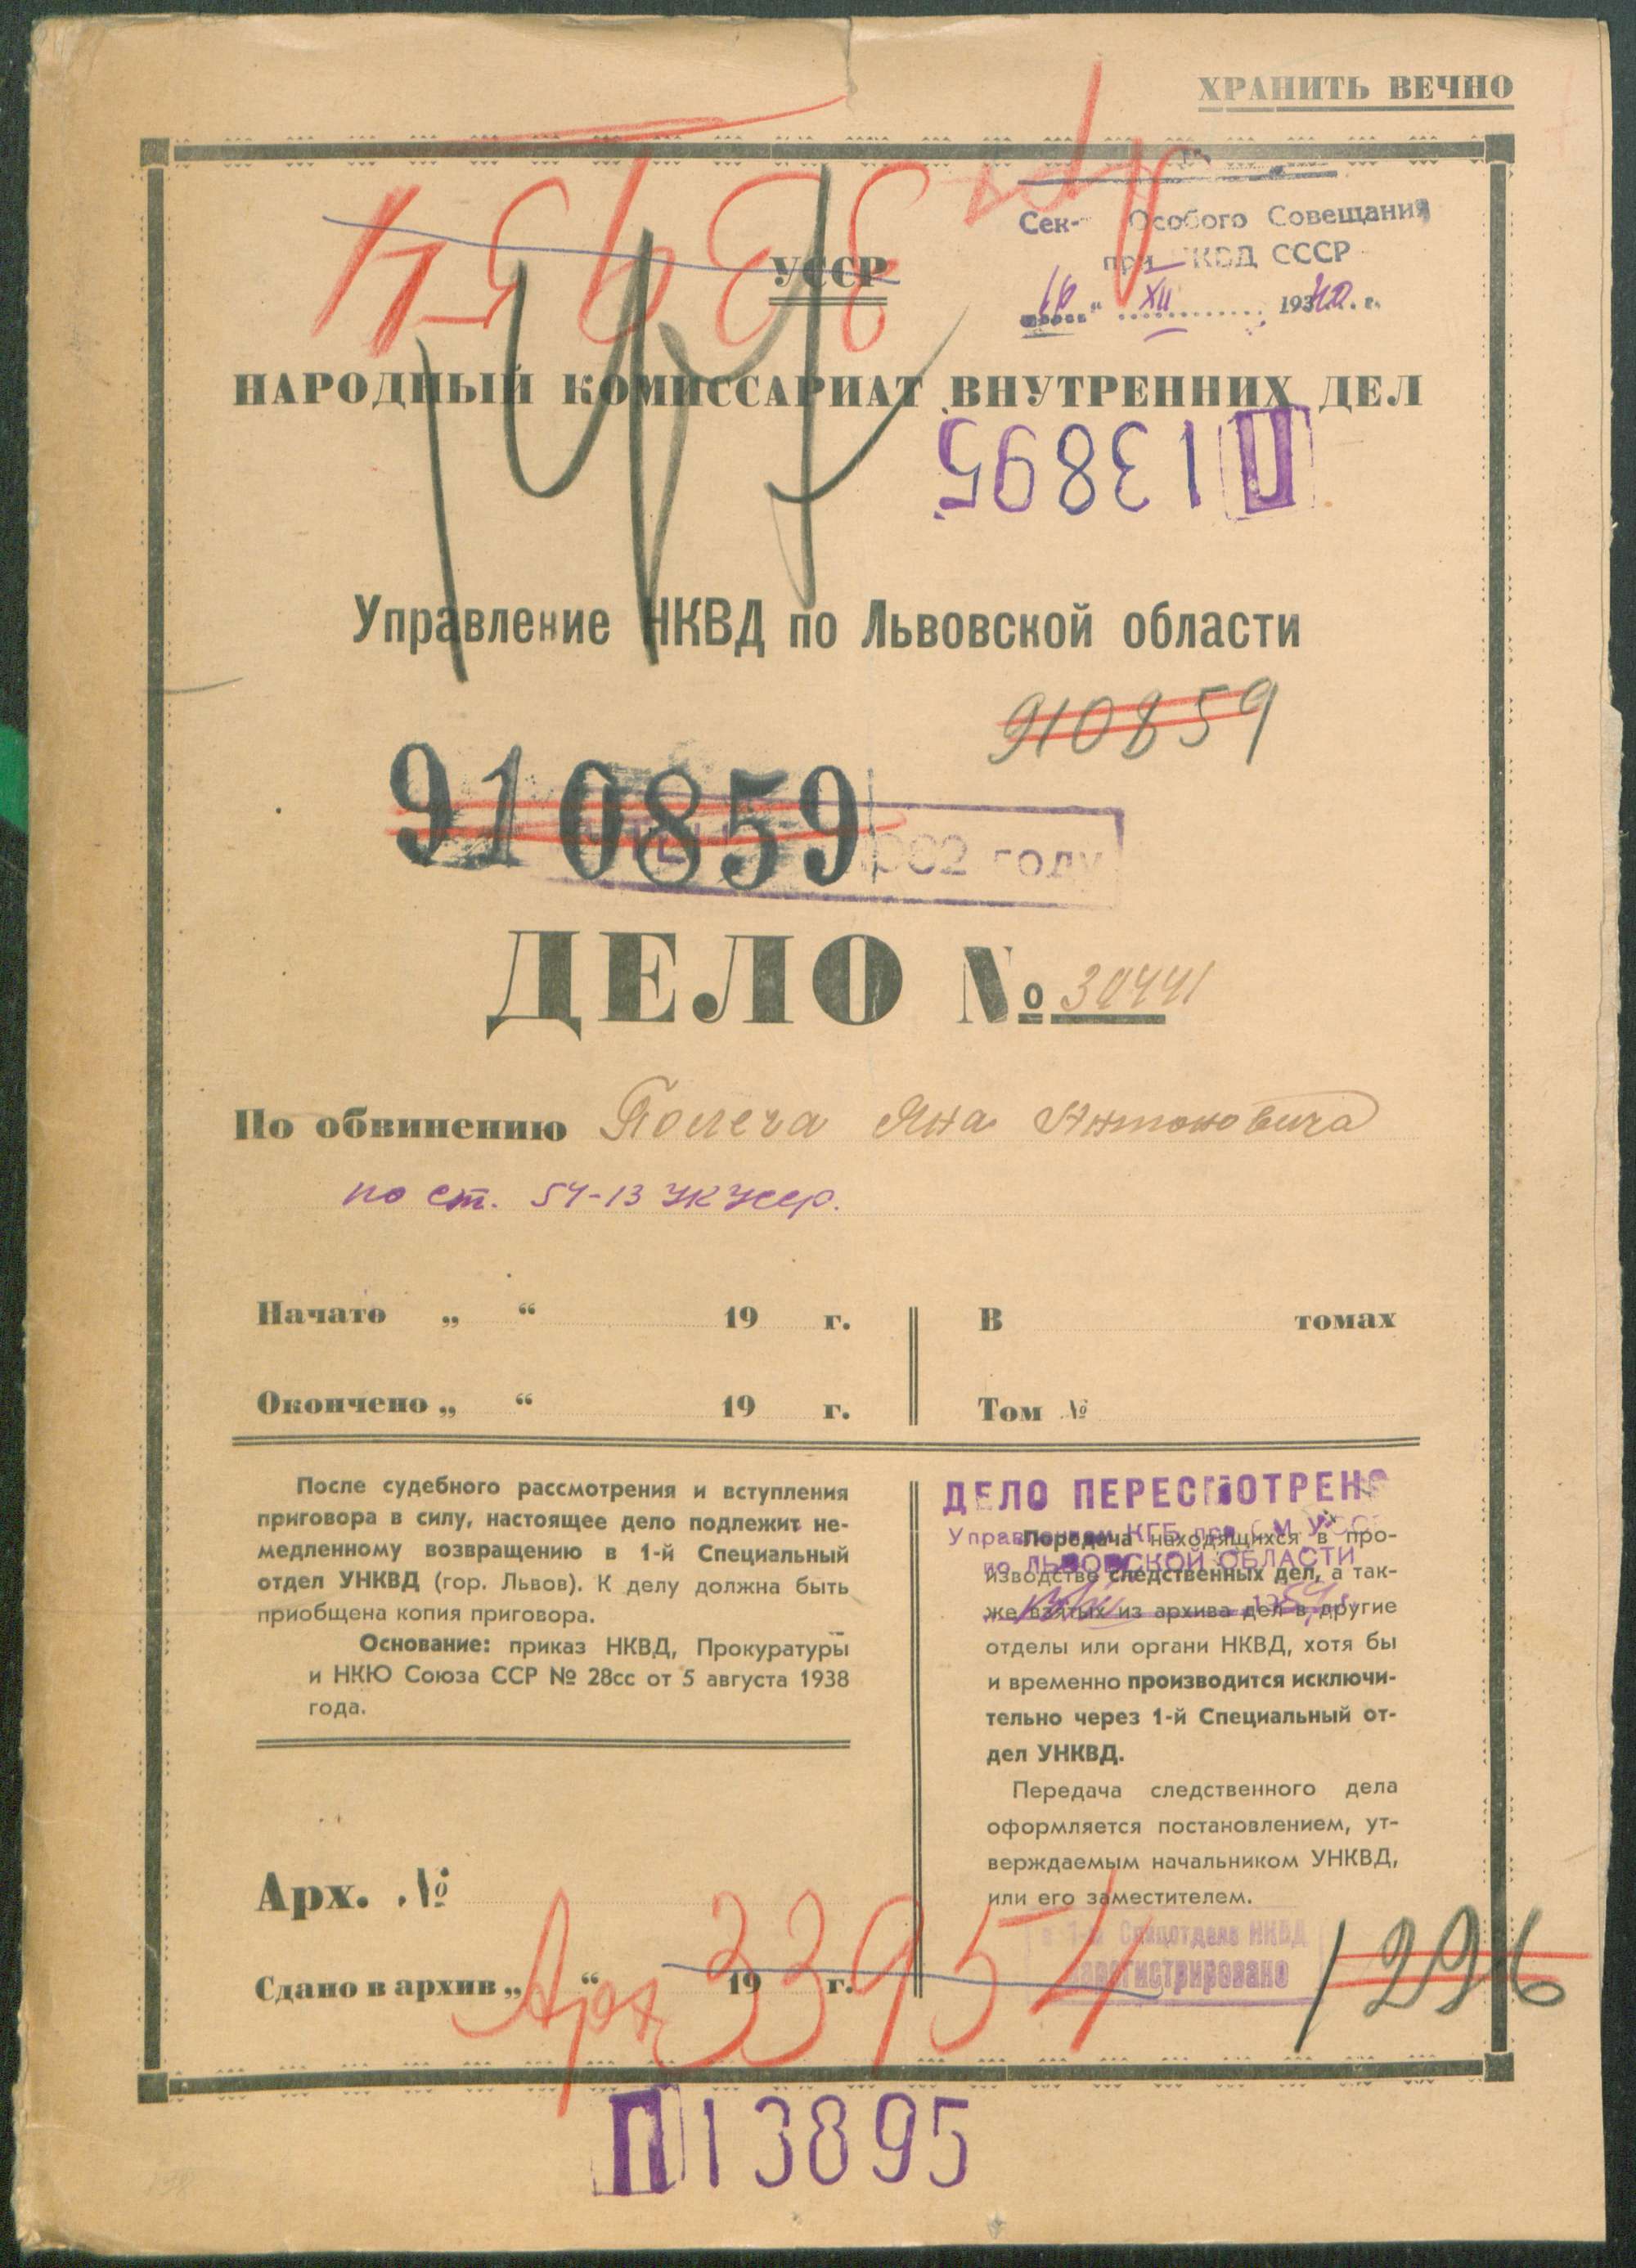 ХРАНИТЬ ВЕЧНО
Арх 33954
Особого Совещания
при НКВД СССР
"16" XII 1940 г.
УССР
НАРОДНЫЙ КОМИССАРИАТ ВНУТРЕННИХ ДЕЛ
П 13895
Управление НКВД по Львовской области
910859
910859
году
ДЕЛО № 30441
По обвинению Полеча Яна Антоновича
по ст. 54-13 УК УССР.
Начато „ “ 19 г.
В томах
Окончено „ “ 19 г.
Том №
После судебного рассмотрения и вступления
приговора в силу, настоящее дело подлежит не-
медленному возвращению в 1-й Специальный
отдел УНКВД (гор. Львов). К делу должна быть
приобщена копия приговора.
Основание: приказ НКВД, Прокуратуры
и НКЮ Союза ССР № 28сс от 5 августа 1938
года.
ДЕЛО ПЕРЕСМОТРЕНО
Управлением КГБ при СМ УССР
по ЛЬВОВСКОЙ ОБЛАСТИ
Передача находящихся в про-
изводстве следственных дел, а так-
же взятых из архива дел в другие
отделы или органи НКВД, хотя бы
и временно производится исключи-
тельно через 1-й Специальный от-
дел УНКВД.
Передача следственного дела
оформляется постановлением, ут-
верждаемым начальником УНКВД,
или его заместителем.
Арх. №
в 1-м Спецотделе НКВД
Зарегистрировано
1296
Сдано в архив „ “ 19 г.
Арх 33954
П 13895